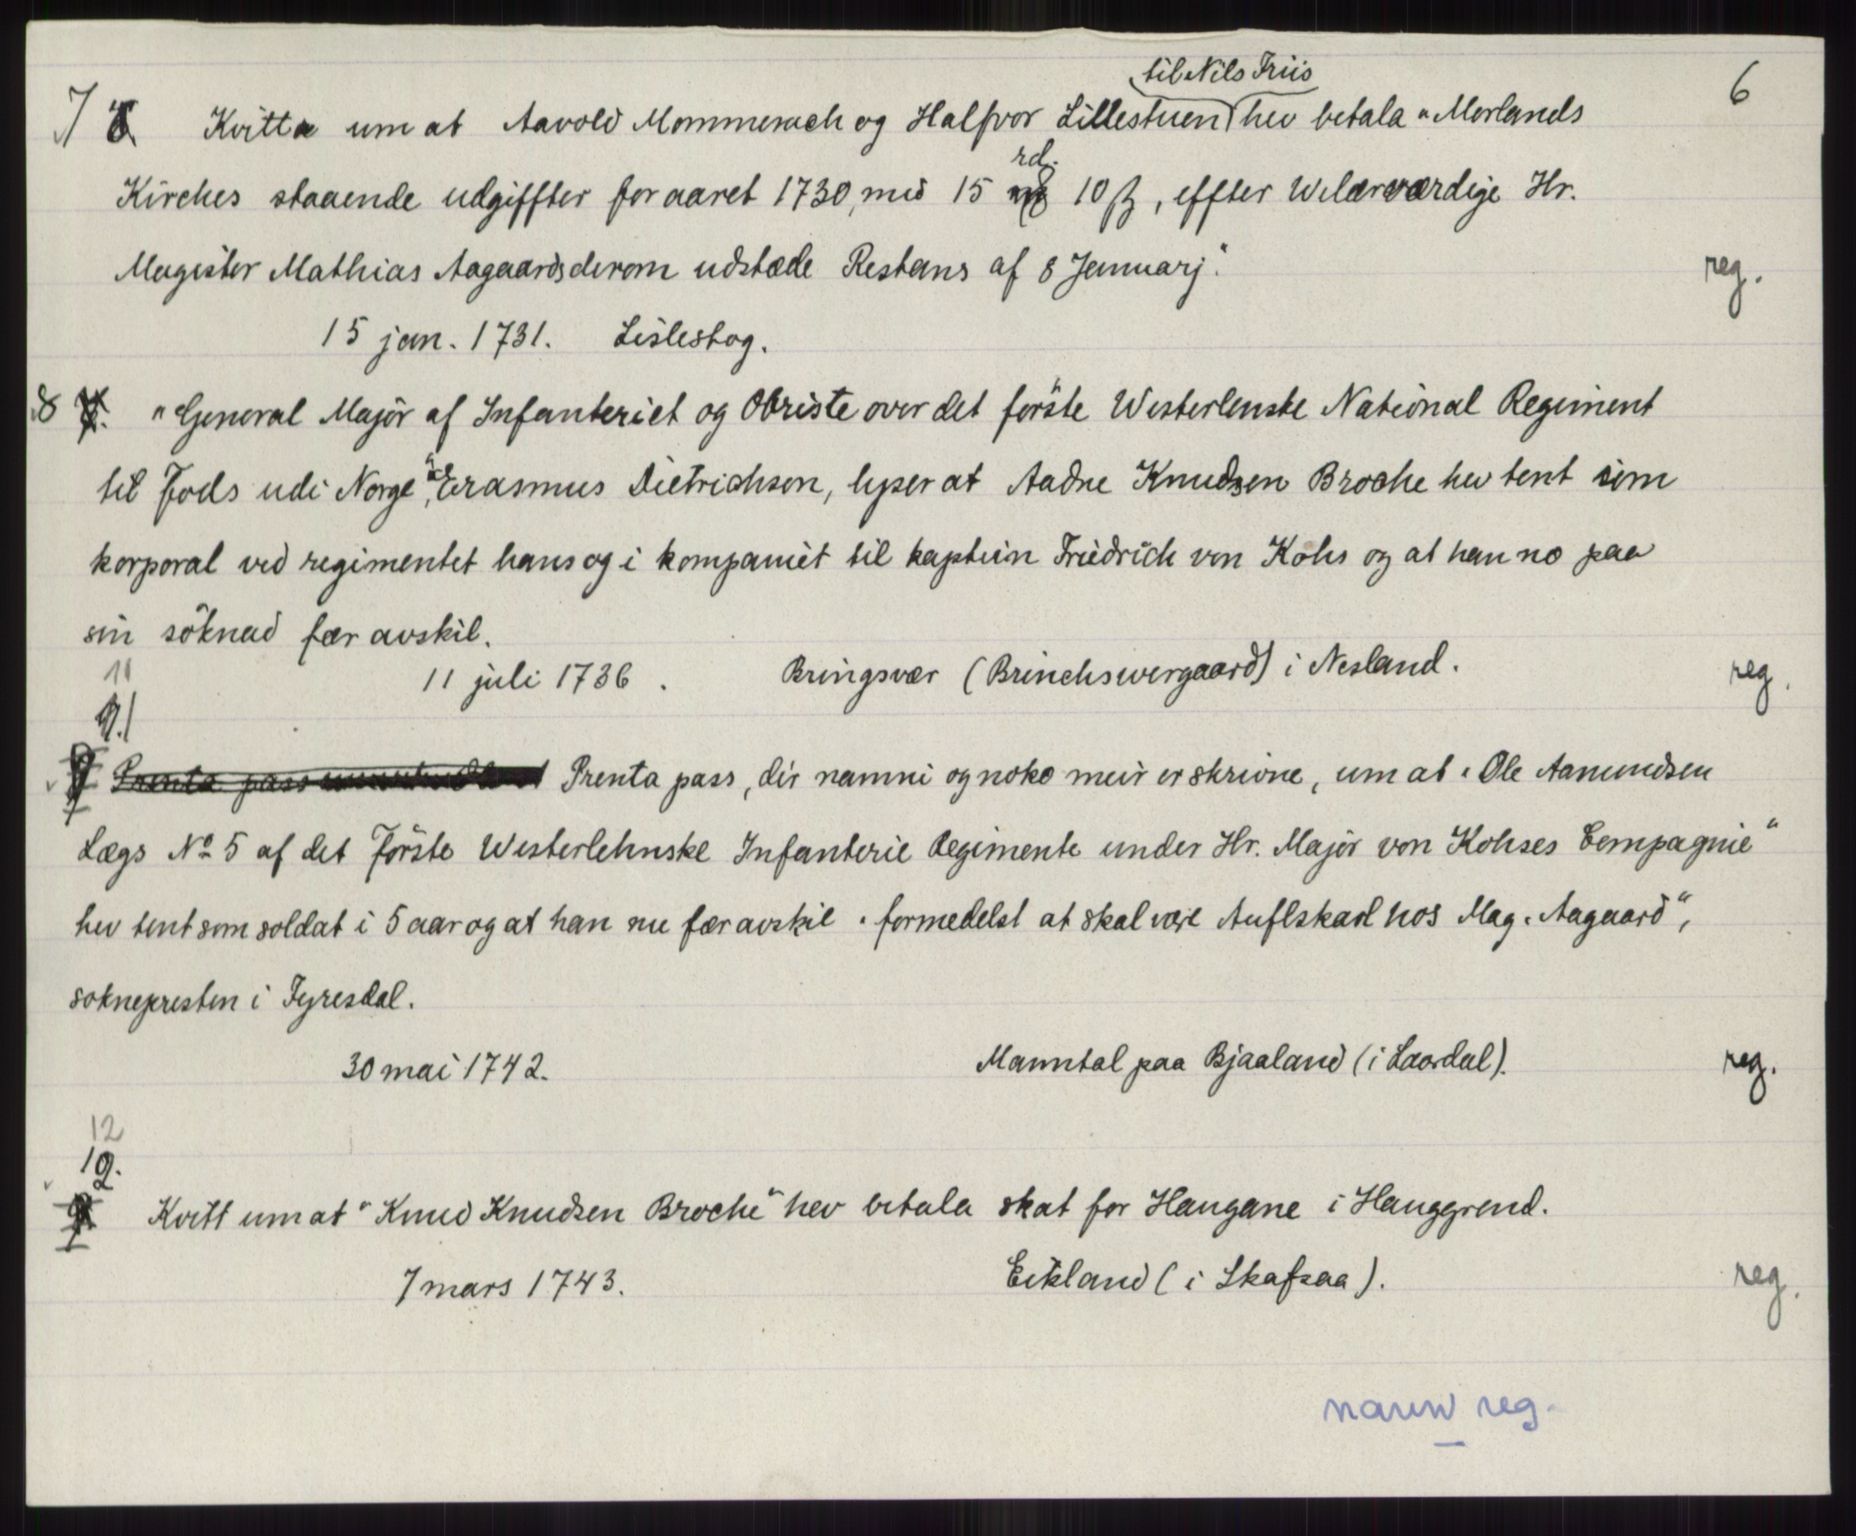 til Nils Friis
6
7/ Kvitta um at Aavold Mommerach og Halfvor Lillestuen hev betala "Morlands
rd.
Kirches staaende udgiffter for aaret 1730, med 15 10 β, effter Welærværdige Hr.
Magister Mathias Aagaards derom udstæde Restans af 8 Januarj".
reg.
15 jan. 1731. Lislestog.
8 "General Major af Infanteriet og Obriste over det förste Westerlenske National Regiment
til Fods udi Norge", Erasmus Dietrichson, lyser at Aadne Knudsen Broche hev tent som
korporal ved regimentet hans og i kompaniet til kaptein Friedrich von Kohs og at han no paa
sin söknad fær avskil.
11 juli 1736. Bringsvær (Brinchswergaard) i Nesland.
reg.
11
9.
Prenta pass Prenta pass, der namni og noko meir er skrivne, um at "Ole Aamundsen
Lægs No 5 af det Förste Westerlehnske Infanterie Regimente under Hr. Major von Kohses Compagnie"
hev tent som soldat i 5 aar og at han nu fær avskil "formedelst at skal være Auflskarl hos Mag. Aagaard",
soknepresten i Fyresdal.
30 mai 1742. Manntal paa Bjaaland (i Laordal).
reg.
12
10.
Kvitt um at "Knud Knudsen Broche" hev betala skat for Haugane i Hauggrend.
7 mars 1743. Eikland (i Skafsaa).
reg.
navn reg.